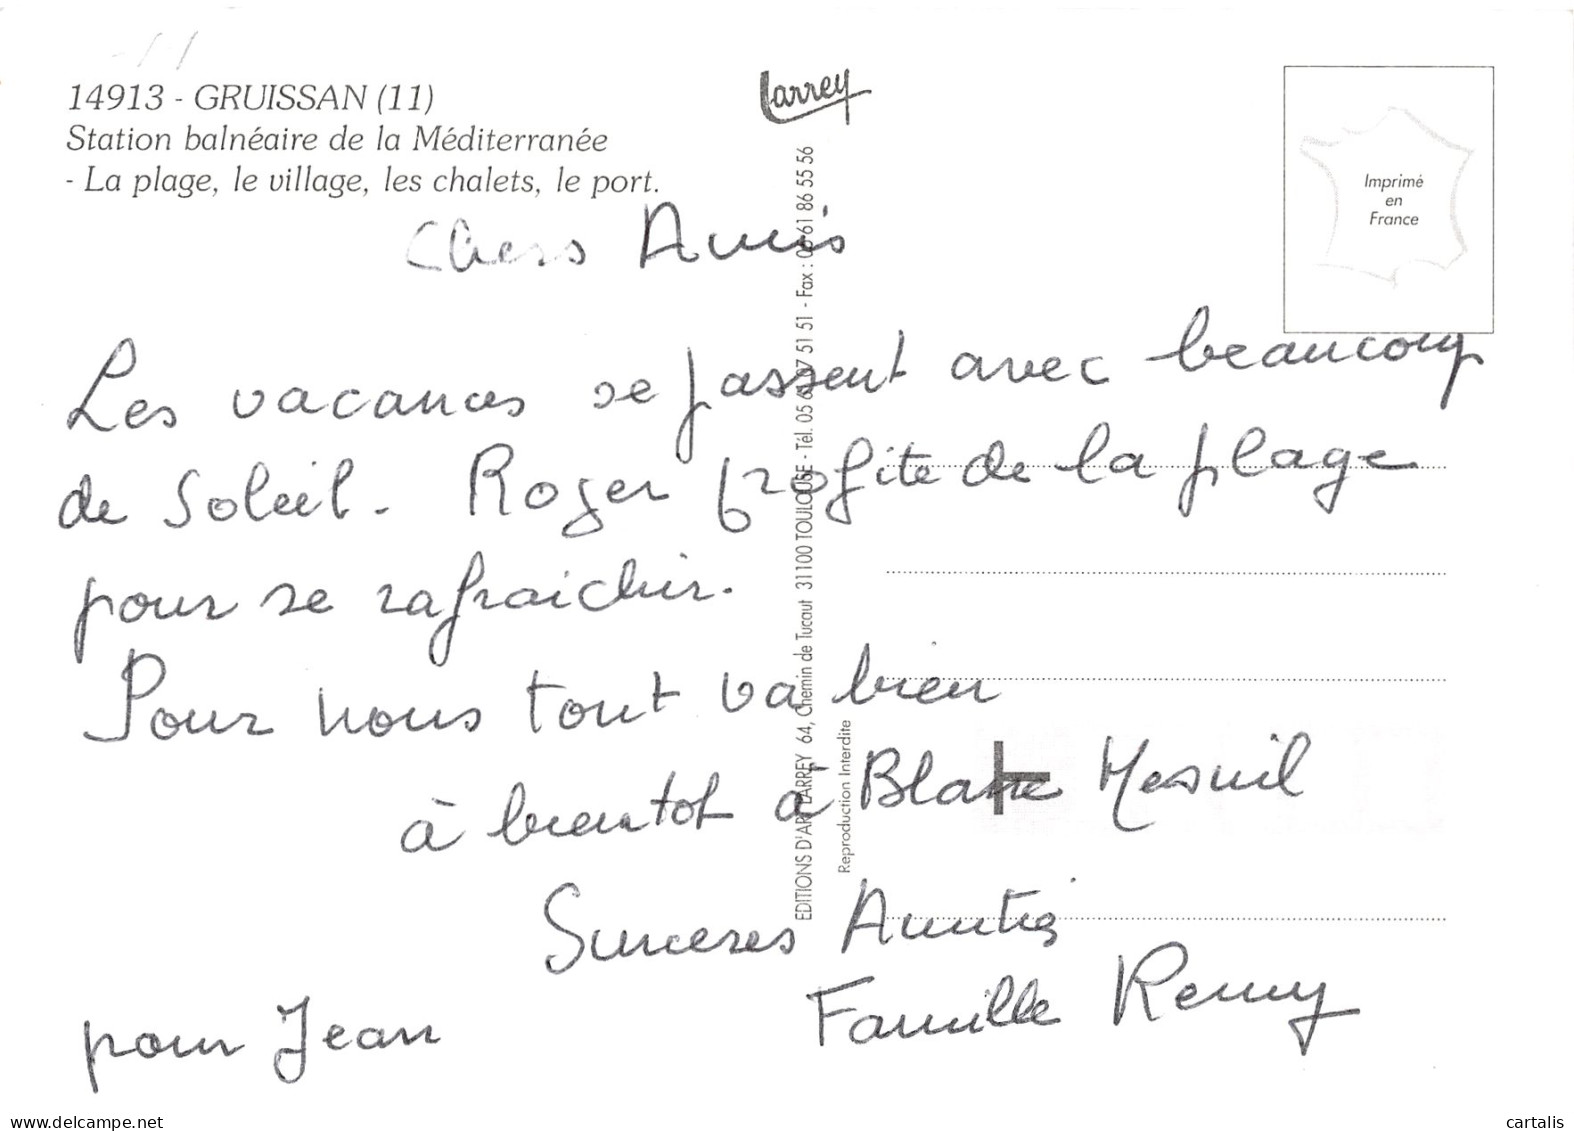 14913 - GRUISSAN (11)
Station balnéaire de la Méditerranée
- La plage, le village, les chalets, le port.
Larrey
Imprimé
en
France
EDITIONS D'ART LARREY 64, Chemin de Tucaut 31100 TOULOUSE - Tél. 05 61 51 51 - Fax : 61 86 55 56
Reproduction Interdite
Chers Amis
Les vacances se passent avec beaucoup
de Soleil. Roger profite de la plage
pour se rafraichir.
Pour nous tout va bien
à bientot à Blanc Mesnil
Sinceres Amitiés
Famille Remy
pour Jean
delcampe.net
cartalis